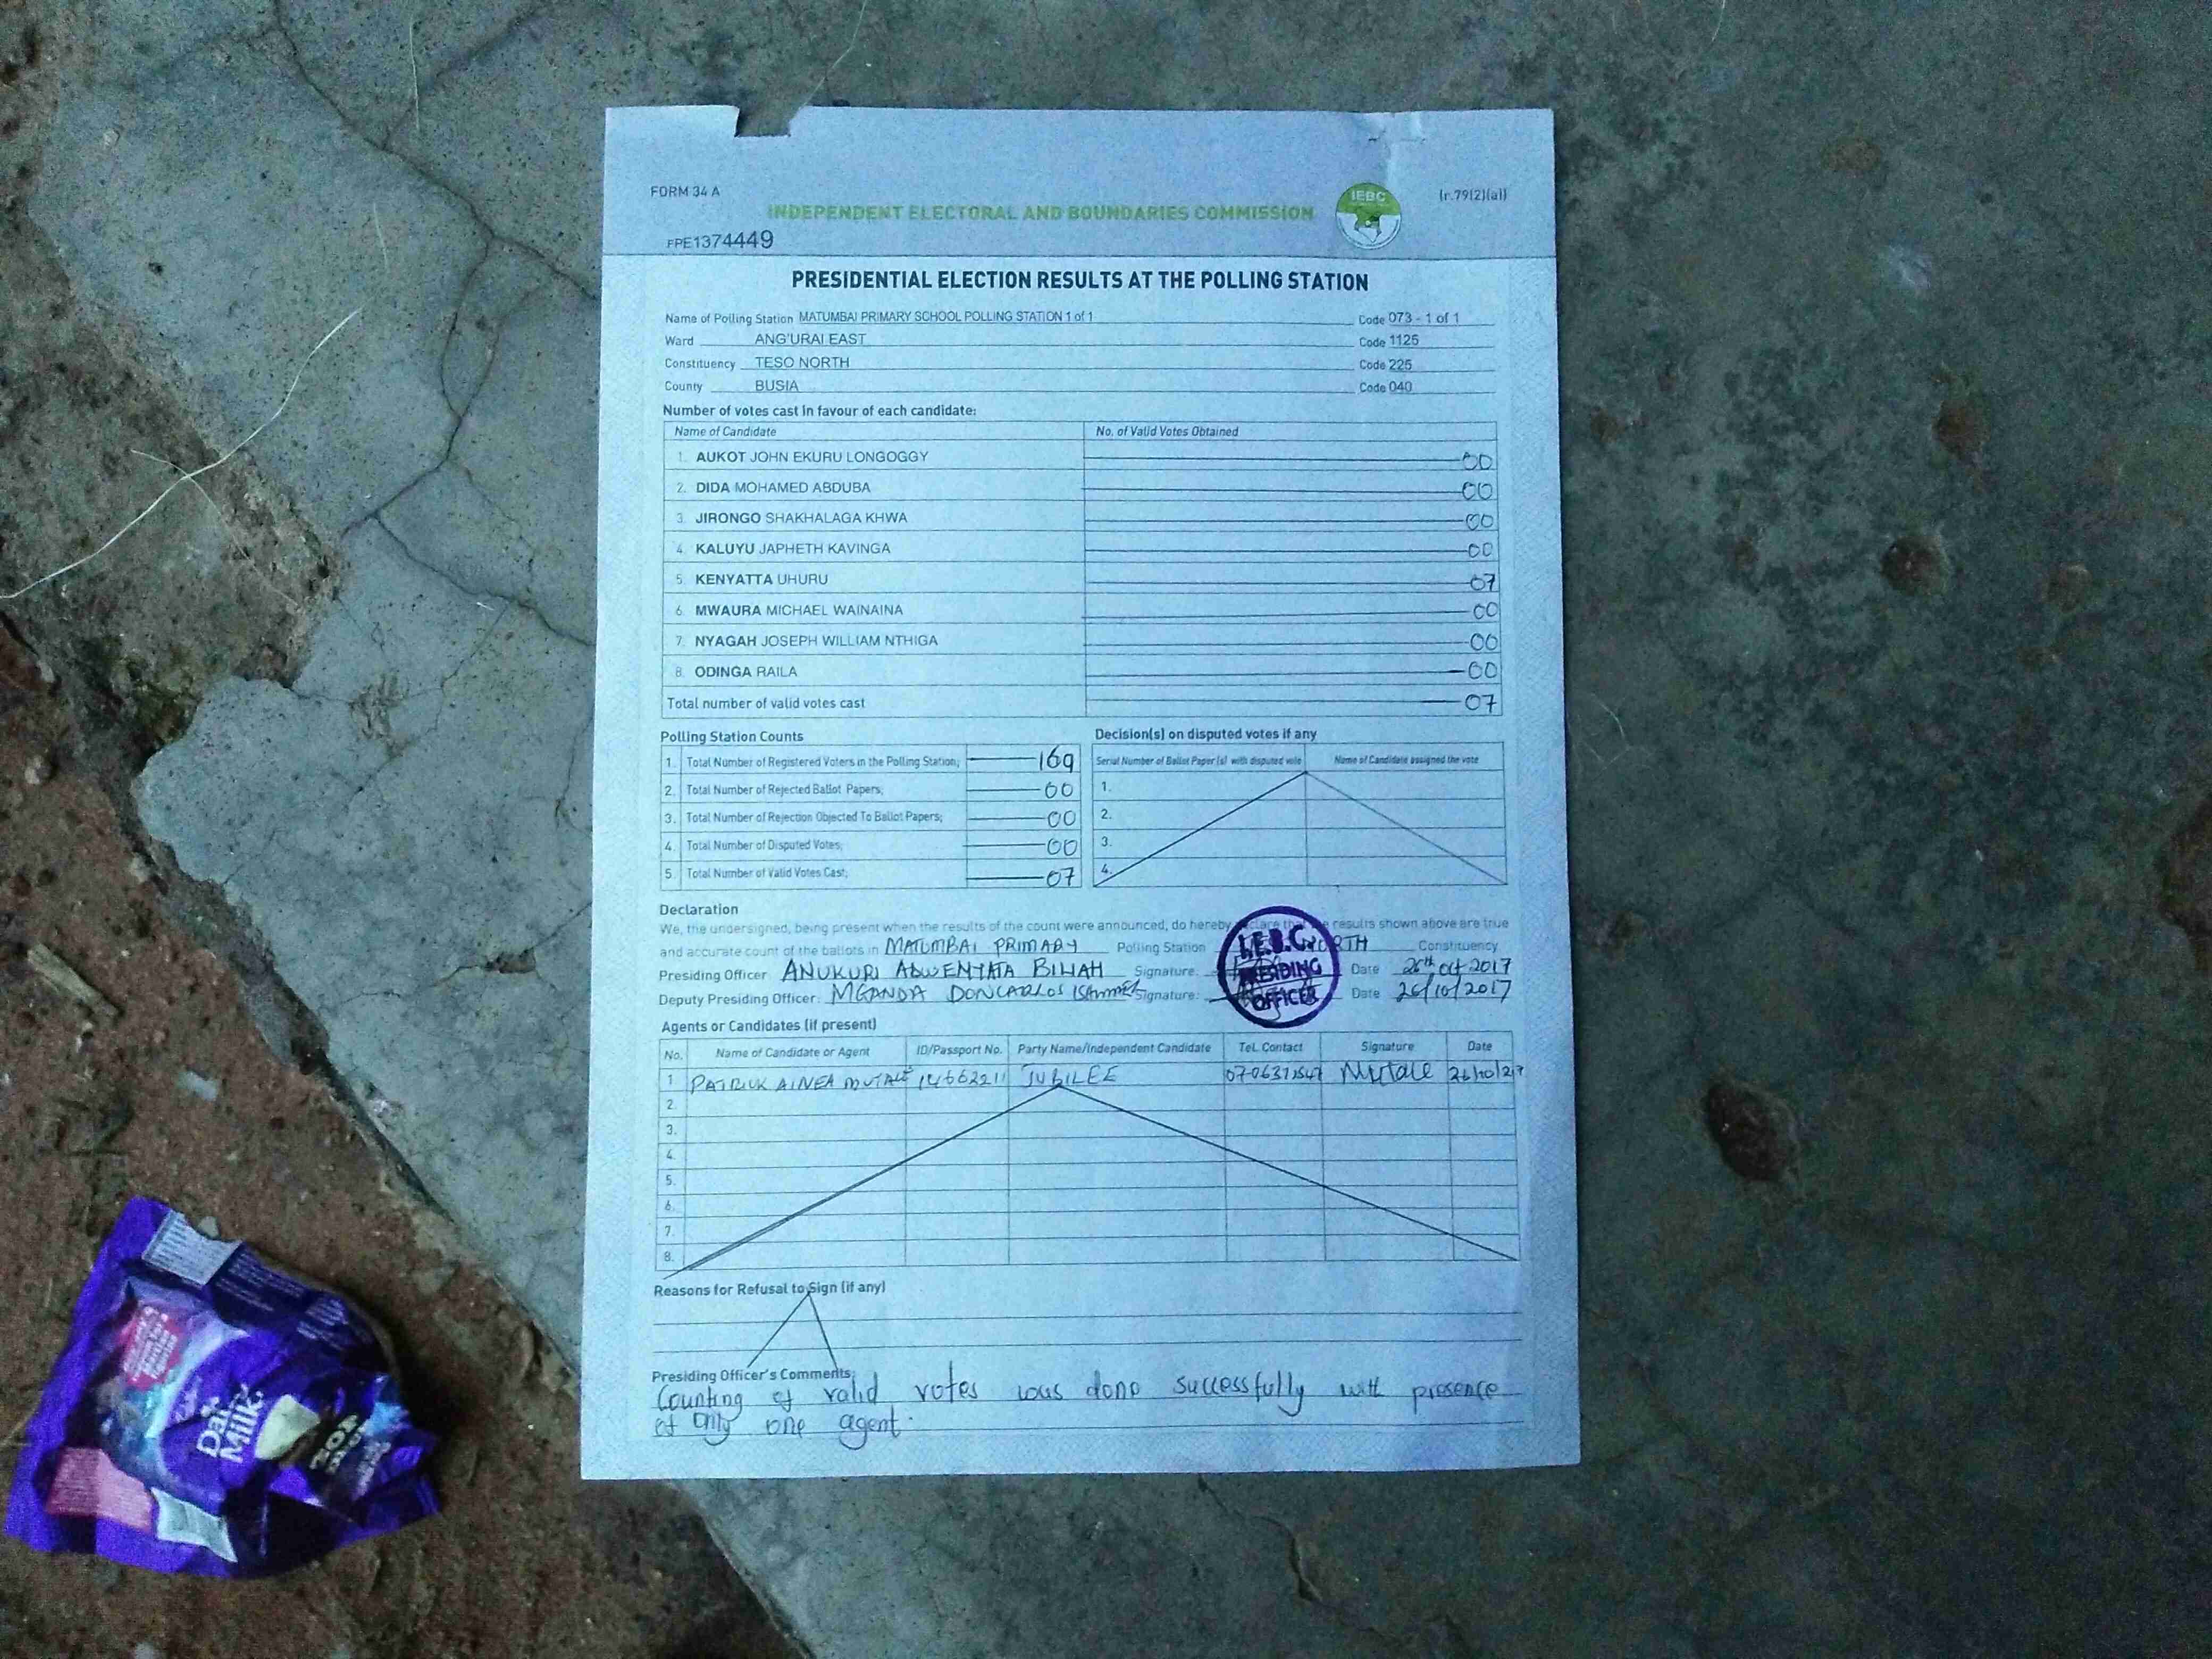 FORM 34 A
(r.79(2)(a))
IEBC
INDEPENDENT ELECTORAL AND BOUNDARIES COMMISSION
FPE1374449
PRESIDENTIAL ELECTION RESULTS AT THE POLLING STATION
Name of Polling Station MATUMBAI PRIMARY SCHOOL POLLING STATION 1 of 1 Code 073 - 1 of 1
Ward ANG'URAI EAST Code 1125
Constituency TESO NORTH Code 225
County BUSIA Code 040
Number of votes cast in favour of each candidate:
Name of Candidate No. of Valid Votes Obtained
1. AUKOT JOHN EKURU LONGOGGY 00
2. DIDA MOHAMED ABDUBA 00
3. JIRONGO SHAKHALAGA KHWA 00
4. KALUYU JAPHETH KAVINGA 00
5. KENYATTA UHURU 07
6. MWAURA MICHAEL WAINAINA 00
7. NYAGAH JOSEPH WILLIAM NTHIGA 00
8. ODINGA RAILA 00
Total number of valid votes cast 07
Polling Station Counts
1. Total Number of Registered Voters in the Polling Station; 169
2. Total Number of Rejected Ballot Papers; 00
3. Total Number of Rejection Objected To Ballot Papers; 00
4. Total Number of Disputed Votes; 00
5. Total Number of Valid Votes Cast; 07
Decision(s) on disputed votes if any
Serial Number of Ballot Paper (s) with disputed vote Name of Candidate assigned the vote
1.
2.
3.
4.
Declaration
We, the undersigned, being present when the results of the count were announced, do hereby declare that the results shown above are true
and accurate count of the ballots in MATUMBAI PRIMARY Polling Station NORTH Constituency
Presiding Officer ANUKURI Signature: Date 26th Oct 2017
Deputy Presiding Officer: MGANDA DONCARLOS Signature: Date 26/10/2017
I.E.B.C.
PRESIDING
OFFICER
Agents or Candidates (if present)
No. Name of Candidate or Agent ID/Passport No. Party Name/Independent Candidate Tel. Contact Signature Date
1 PATRICK AINEA MUTALE 14662211 JUBILEE Mutale
2.
3.
4.
5.
6.
7.
8.
Reasons for Refusal to Sign (if any)
Presiding Officer's Comments;
Counting of valid votes was done successfully with presence
of only one agent.
Dairy
Milk